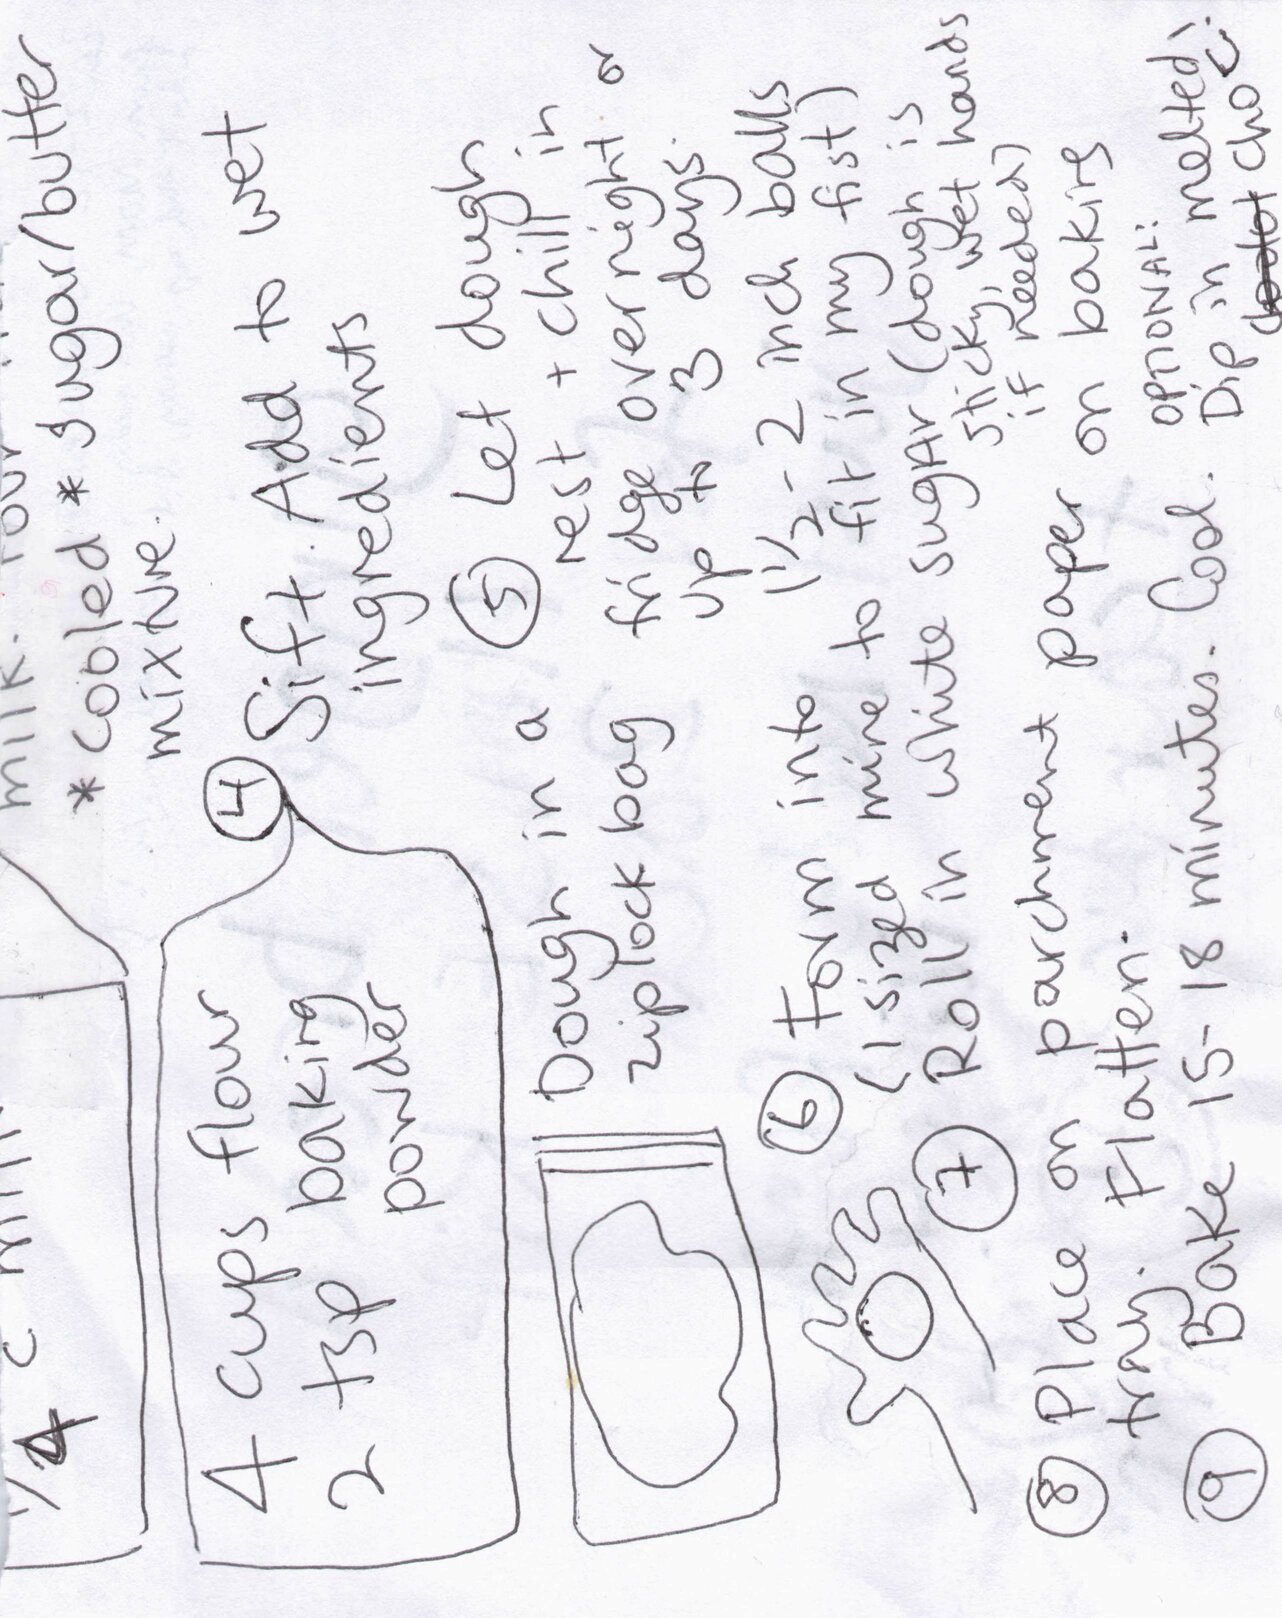 1/4 c milk
milk.
*cooled* sugar/butter
mixture.
4 cups flour
2 tsp baking
powder
④ Sift. Add to wet
ingredients
Dough in a
ziplock bag
⑤ Let dough
rest + chill in
fridge overnight or
up to 3 days.
⑥ Form into 1 1/2-2 inch balls
(I sized mine to fit in my fist)
⑦ Roll in white sugar (dough is
sticky, wet hands
if needed)
⑧ Place on parchment paper on baking
tray. Flatten.
⑨ Bake 15-18 minutes. Cool.
OPTIONAL:
Dip in melted
cho